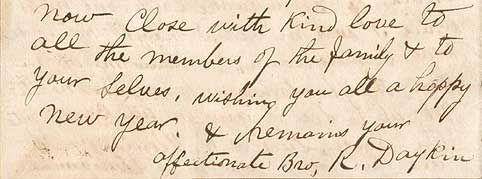 now Close with Kind love to
all the members of the family & to
your Selves, wishing you all a happy
new year. & remains your
affectionate Bro, R. Daykin